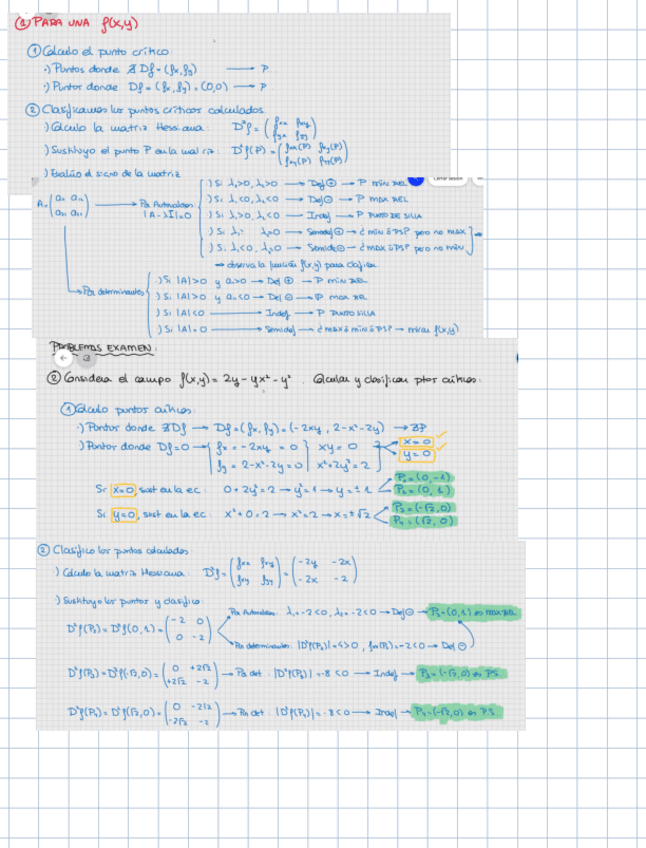 ① PARA UNA f(x,y)
① Calculo el punto crítico:
·) Puntos donde ∄ Df = (fx, fy) → P
·) Puntos donde Df = (fx, fy) = (0,0) → P
② Clasificamos los puntos críticos calculados.
·) Calculo la matriz Hessiana: D²f = (fxx fxy
fyx fyy)
·) Sustituyo el punto P en la matriz: D²f(P) = (fxx(P) fxy(P)
fxy(P) fyy(P))
·) Evalúo el signo de la matriz
·) Si λ₁>0, λ₂>0 → Def ⊕ → P min REL
A = (a₁₁ a₁₂ → Por Autovalores ·) Si λ₁<0, λ₂<0 → Def ⊖ → P max REL
a₂₁ a₂₂) |A-λI|=0 ·) Si λ₁>0, λ₂<0 → Indef → P PUNTO DE SILLA
·) Si λ₁ λ₂=0 → Semidef ⊕ → ¿ min ó PSP pero no max
·) Si λ₁<0, λ₂=0 → Semidef ⊖ → ¿ max ó PSP pero no min
→ observa la función f(x,y) para clasificar
·) Si |A|>0 y a₁₁>0 → Def ⊕ → P min REL
→ Por determinantes ·) Si |A|>0 y a₁₁<0 → Def ⊖ → P max REL
·) Si |A|<0 → Indef → P PUNTO SILLA
·) Si |A|=0 → Semidef → ¿ max ó min ó PS → mirar f(x,y)
PROBLEMAS EXAMEN:
② Considera el campo f(x,y) = 2y - yx² - y². Calcular y clasificar ptos críticos:
① Calculo puntos críticos:
·) Puntos donde ∄ Df → Df = (fx, fy) = (-2xy, 2-x²-2y) → ∄P
·) Puntos donde Df=0 → fx = -2xy = 0 xy = 0 x=0 ✓
fy = 2-x²-2y=0 x²+2y²=2 y=0 ✓
Si x=0, sust en la ec: 0+2y²=2 → y²=1 → y=±1 P₁=(0,-1)
P₂=(0,1)
Si y=0, sust en la ec: x²+0=2 → x²=2 → x=±√2 P₃=(-√2,0)
P₄=(√2,0)
② Clasifico los puntos calculados:
·) Calculo la matriz Hessiana: D²f = (fxx fxy = (-2y -2x
fxy fyy) -2x -2)
·) Sustituyo los puntos y clasifico:
Por Autovalores: λ₁=-2<0, λ₂=-2<0 → Def ⊖ → P₂=(0,1) es max REL
D²f(P₂) = D²f(0,1) = (-2 0
0 -2)
Por determinantes: |D²f(P₂)|=4>0, fxx(P₂)=-2<0 → Def ⊖
D²f(P₃) = D²f(-√2,0) = (0 +2√2 → Por det: |D²f(P₃)|=-8<0 → Indef → P₃=(-√2,0) es PS
+2√2 -2)
D²f(P₄) = D²f(√2,0) = (0 -2√2 → Por det: |D²f(P₄)|=-8<0 → Indef → P₄=(-√2,0) es P.S
-2√2 -2)